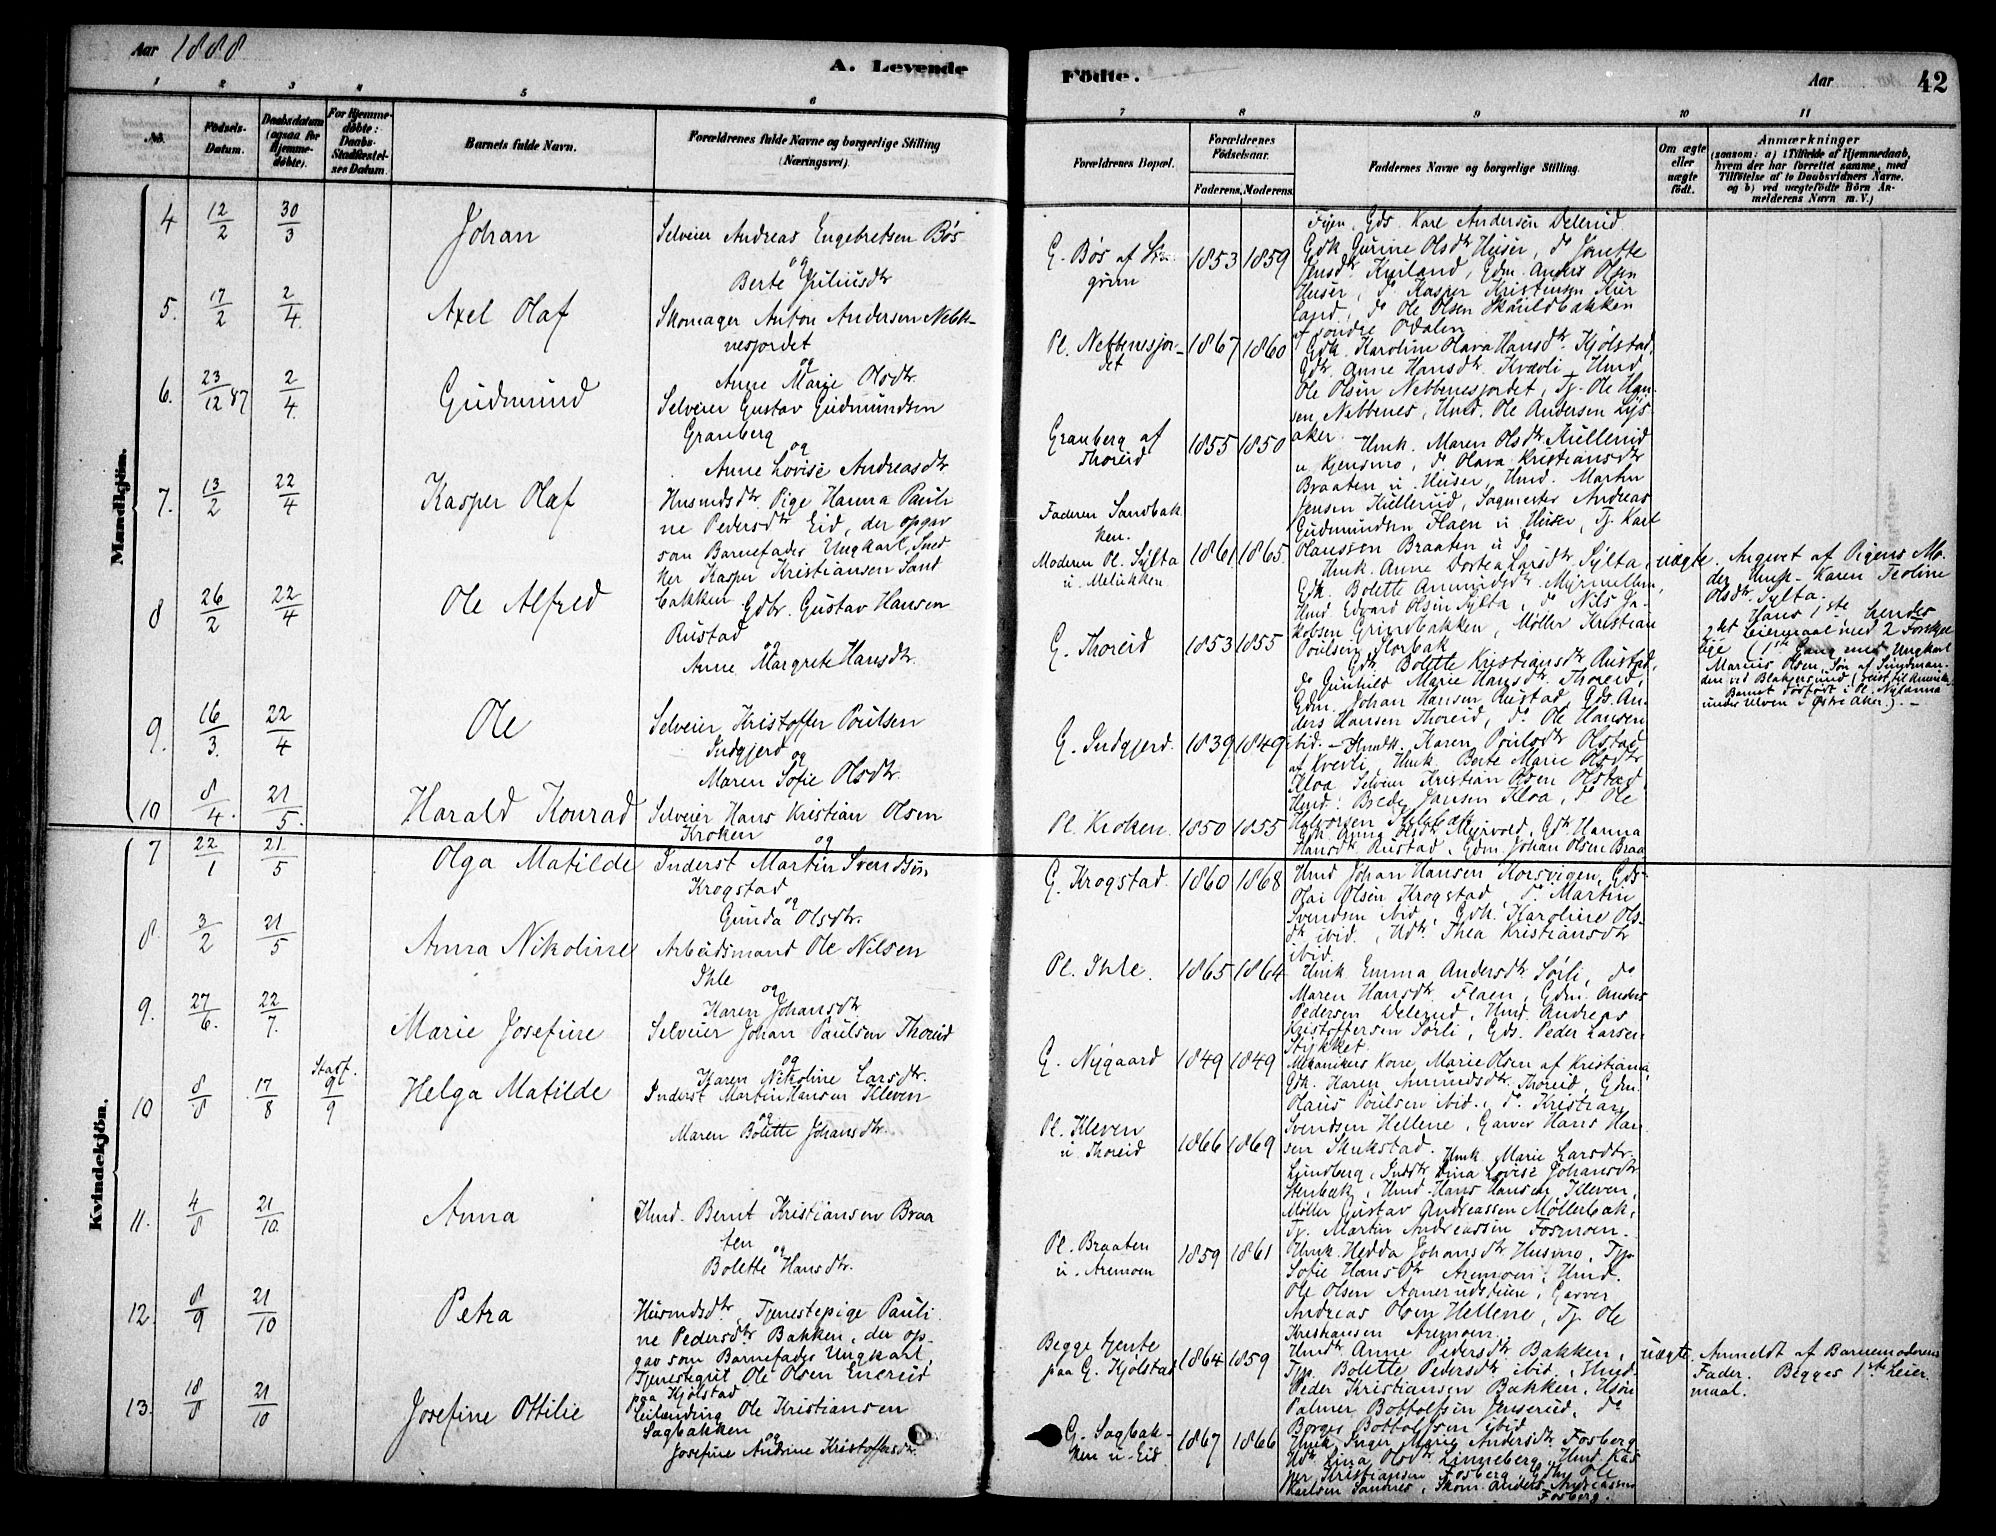 Aar 1888
A. Levende
Födte.
Aar
42
1 2 3 4 5 6 7 8 9 10 11
No.
Födsels-Datum.
Daabsdatum (ogsaa for Hjemmedöbte).
For Hjemmedöbte: Daabs-Stadfæstelses Datum.
Barnets fulde Navn.
Forældrenes fulde Navne og borgerlige Stilling (Næringsvei).
Forældrenes Bopæl.
Forældrenes Födselsaar.
Faderens. Moderens.
Faddernes Navne og borgerlige Stilling.
Om ægte eller uægte födt.
Anmærkninger
(saasom: a) i Tilfælde af Hjemmedaab, hvem der har forrettet samme, med Tilföielse af to Daabsvidners Navne. og b) ved uægtefödte Börn Anmelderens Navn m. V.)
Mandkjön.
4 12/2 30/3 Johan
Selveier Andreas Engebretsen Bös
og
Berte Juliusdtr
G. Bös af
1853 1859
Gds. Karl Andersen Delerud
Gdk. Gurine Olsdtr Huser, do Janette
Jensdtr. Kurland, Gdm. Anders Olsen
Huser, do Kasper Kristensen Kur
land, do Ole Olsen Skåuldbakken
söndre Odalen
5. 17/2 2/4. Axel Olaf
Skomager Anton Andersen Nebbe-
nesjordet
og
Anne Marie Olsdtr.
Pl. Nebbenesjor-
det
1867 1860
Gdk. Karoline Olava Hansdtr. Kjölstad,
Gdtr. Anne Hansdtr. Kvævli, Hmd
Ole Olsen Nebbenesjordet, Tj. Ole Han-
sen, Nebbenes, Hmd. Ole Andersen Lys-
aker.
6. 23/12 87 2/4. Gudmund
Selveier Gustav Gudmundsen
Granberg
og
Anne Lovise Andreasdtr.
Granberg af
Thoreid
1855 1850
Hmk. Maren Olsdtr. Kullerud
u. Kjensmo, do Olava Kristiansdtr
Braaten u. Huser, Hmd. Martin
Jensen Kullerud, Sagmester Andreas
Gudmundsen Flaen u. Huser, Tj. Karl
Olaussen Braaten u. do
7. 13/2 22/4 Kasper Olaf
Husmdsdtr. Pige Hanna Pauli
ne Pedersdtr Eid, der opgav
som Barnefader Ungkarl, Sned
ker Kasper Kristiansen Sand
bakken
Faderen Sandbak
ken.
Moderen Pl. Sylta
u. Melukken
1861 1865
Hmk. Anne Dortea Larsdtr. Sylta,
Gdk. Bolette Amundsdtr. Myrmellem,
Hmd. Edvard Olsen Sylta, do Nils Ja-
kobsen Grindbakken, Möller Kristian
Poulsen Horbak
uægte
Angivet af Pigens Mo-
der Hmk. Karen Teoline
Olsdtr. Sylta.
Hans 1ste, hendes
2det Leiermaal med 2 Forskjel
lige (1ste Gang med Ungkarl
Marius Olsen, Sön af
(reist til Amerika
8 26/2 22/4 Ole Alfred
Gdbr. Gustav Hansen
Rustad
og
Anne Margrete Hansdtr.
G. Thoreid
1853 1855
Gdk. Bolette Kristiansdtr. Rustad,
do Gunhild Marie Hansdtr. Thoreid,
Gdm. Johan Hansen Rustad, Gds. An-
ders Hansen Thoreid, do Ole Hansen
ibid.
9. 16/3. 22/4 Ole
Selveier Kristoffer Poulsen
Indgjerd
og
Maren Sofie Olsdtr.
G. Indgjerd.
1839 1849
Hmdk. Karen Poulsdtr Olstad
af Kvevli, Hmk. Berte Marie Olsdtr
Kloa Selveier Kristian Olsen Olstad,
Hmd: Brede Jansen Kloa, do Ole
Halvorsen
10 8/4. 21/5. Harald Konrad
Selveier Hans Kristian Olsen
Kroken
og
Pl. Kroken.
1850 1855
Gdk. Anna Olsdtr. Myrvold, Gdk. Hanna
Hansdtr. Rustad, Gdm. Johan Olsen Braa
Kvindekjön.
7 22/1 21/5 Olga Matilde
Inderst Martin Svendsen
Krogstad
og
Gunda Olsdtr.
G. Krogstad.
1860 1868
Hmd Johan Hansen Korsvigen, Gds.
Olai Olsen Krogstad, do Martin
Svendsen ibid, Gdk. Karoline Ols-
dtr. ibid., Udtr. Thea Kristiansdtr
ibid.
8. 3/2 21/5 Anna Nikoline
Arbeidsmand Ole Nilsen
Ihle
og
Karen Johansdtr
Pl. Ihle.
1865 1864
Hmk. Emma Andersdtr. Sörli, do
Maren Hansdtr. Flaen, Gdm. Anders
Pedersen Delerud, Hmd. Andreas
Kristoffersen Sörli, Gds. Peder Larsen
Stykket.
9. 27/6. 22/7. Marie Josefine
Selveier Johan Paulsen Thoreid
og
Karen Nikoline Larsdtr.
G. Nygaard
1849 1849
Mekanikers Kone, Marie Olsen af Kristiania,
Gdk. Karen Amundsdtr. Thoreid, Gdm.
Olaus Poulsen ibid., do Kristian
Svendsen Hellene, Garver Hans Han
sen Skukstad.
10 8/8 17/8 Stadf. 9/9 Helga Matilde
Inderst Martin Hansen Kleven
og
Maren Bolette Johansdtr.
Pl. Kleven
u. Thoreid
1866 1869
Hmk. Marie Larsdtr.
Lundberg, Indstr. Dina Lovise Johansdtr
Stenbæk, Hmd. Hans Hansen Kleven,
Möller Gustav Andreassen Möllerbak,
Tj. Martin Andreassen Fosmoen.
11. 4/8 21/10. Anna
Hmd. Bernt Kristiansen Braa
ten
og
Bolette Hansdtr.
Pl. Braaten
u. Aremoen
1859 1861
Hmk. Hedda Johansdtr Husmo, Tjp.
Sofie Hansdtr Aremoen, Hmd.
Ole Olsen Aamerudsteien, Garver
Andreas Olsen Hellene, Tj. Ole
Kristiansen Aremoen.
12. 8/9 21/10 Petra
Husmdsdtr. Tjenestepige Pauli
ne Pedersdtr Bakken, der op-
gav som Barnefader Ungkarl,
Tjenestegut Ole Olsen Enerud
paa Kjölstad
Begge tjente
paa G. Kjölstad
1864 1859
Hmdtr. Anne Pedersdtr Bakken,
Tjp. Bolette Pedersdtr. ibid., Hmd
Peder Kristiansen Bakken,
Palmer Bottolfsen Jenserud, do
Borger Bottolfsen ibid
uægte.
Anmeldt af Barnemoderens
Fader. Begges 1ste Leier
maal.
13. 18/8 21/10 Josefine Ottilie
Leilænding Ole Kristiansen
Sagbakken
og
Josefine Andrine Kristoffersdtr.
G. Sagbak-
ken u. Eid
1867 1866
Hmk. Inger Marie Andersdtr. Fosberg
Udtr. Lina Olsdtr. Linneberg, Hmd. Kas
per Kristiansen Fosberg, Gdbr. Ole
Karlsen Sandnes, Skom. Anders Andreassen
Fosberg.